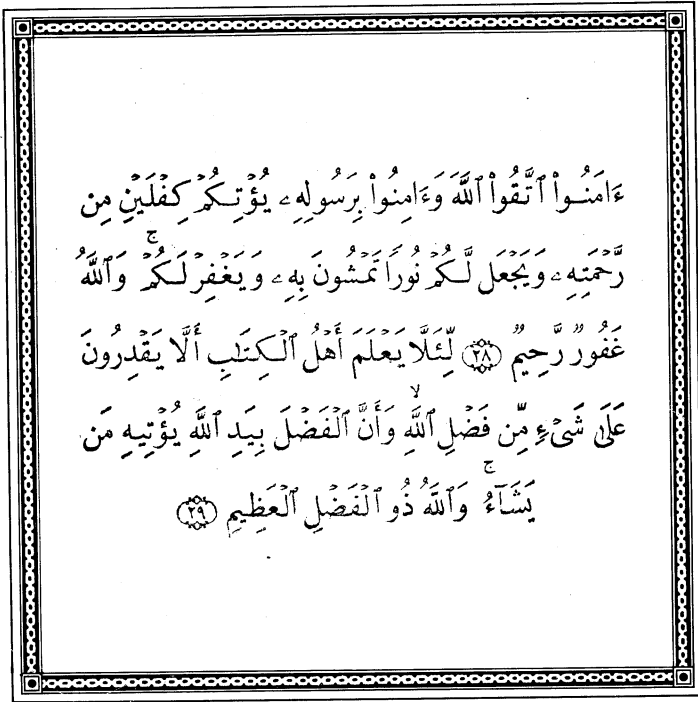 ءَامَنُوا۟ ٱتَّقُوا۟ ٱللَّهَ وَءَامِنُوا۟ بِرَسُولِهِۦ يُؤْتِكُمْ كِفْلَيْنِ مِن
رَّحْمَتِهِۦ وَيَجْعَل لَّكُمْ نُورًا تَمْشُونَ بِهِۦ وَيَغْفِرْ لَكُمْ ۚ وَٱللَّهُ
غَفُورٌ رَّحِيمٌ ٢٨ لِّئَلَّا يَعْلَمَ أَهْلُ ٱلْكِتَابِ أَلَّا يَقْدِرُونَ
عَلَىٰ شَىْءٍ مِّن فَضْلِ ٱللَّهِ ۙ وَأَنَّ ٱلْفَضْلَ بِيَدِ ٱللَّهِ يُؤْتِيهِ مَن
يَشَآءُ ۚ وَٱللَّهُ ذُو ٱلْفَضْلِ ٱلْعَظِيمِ ٢٩